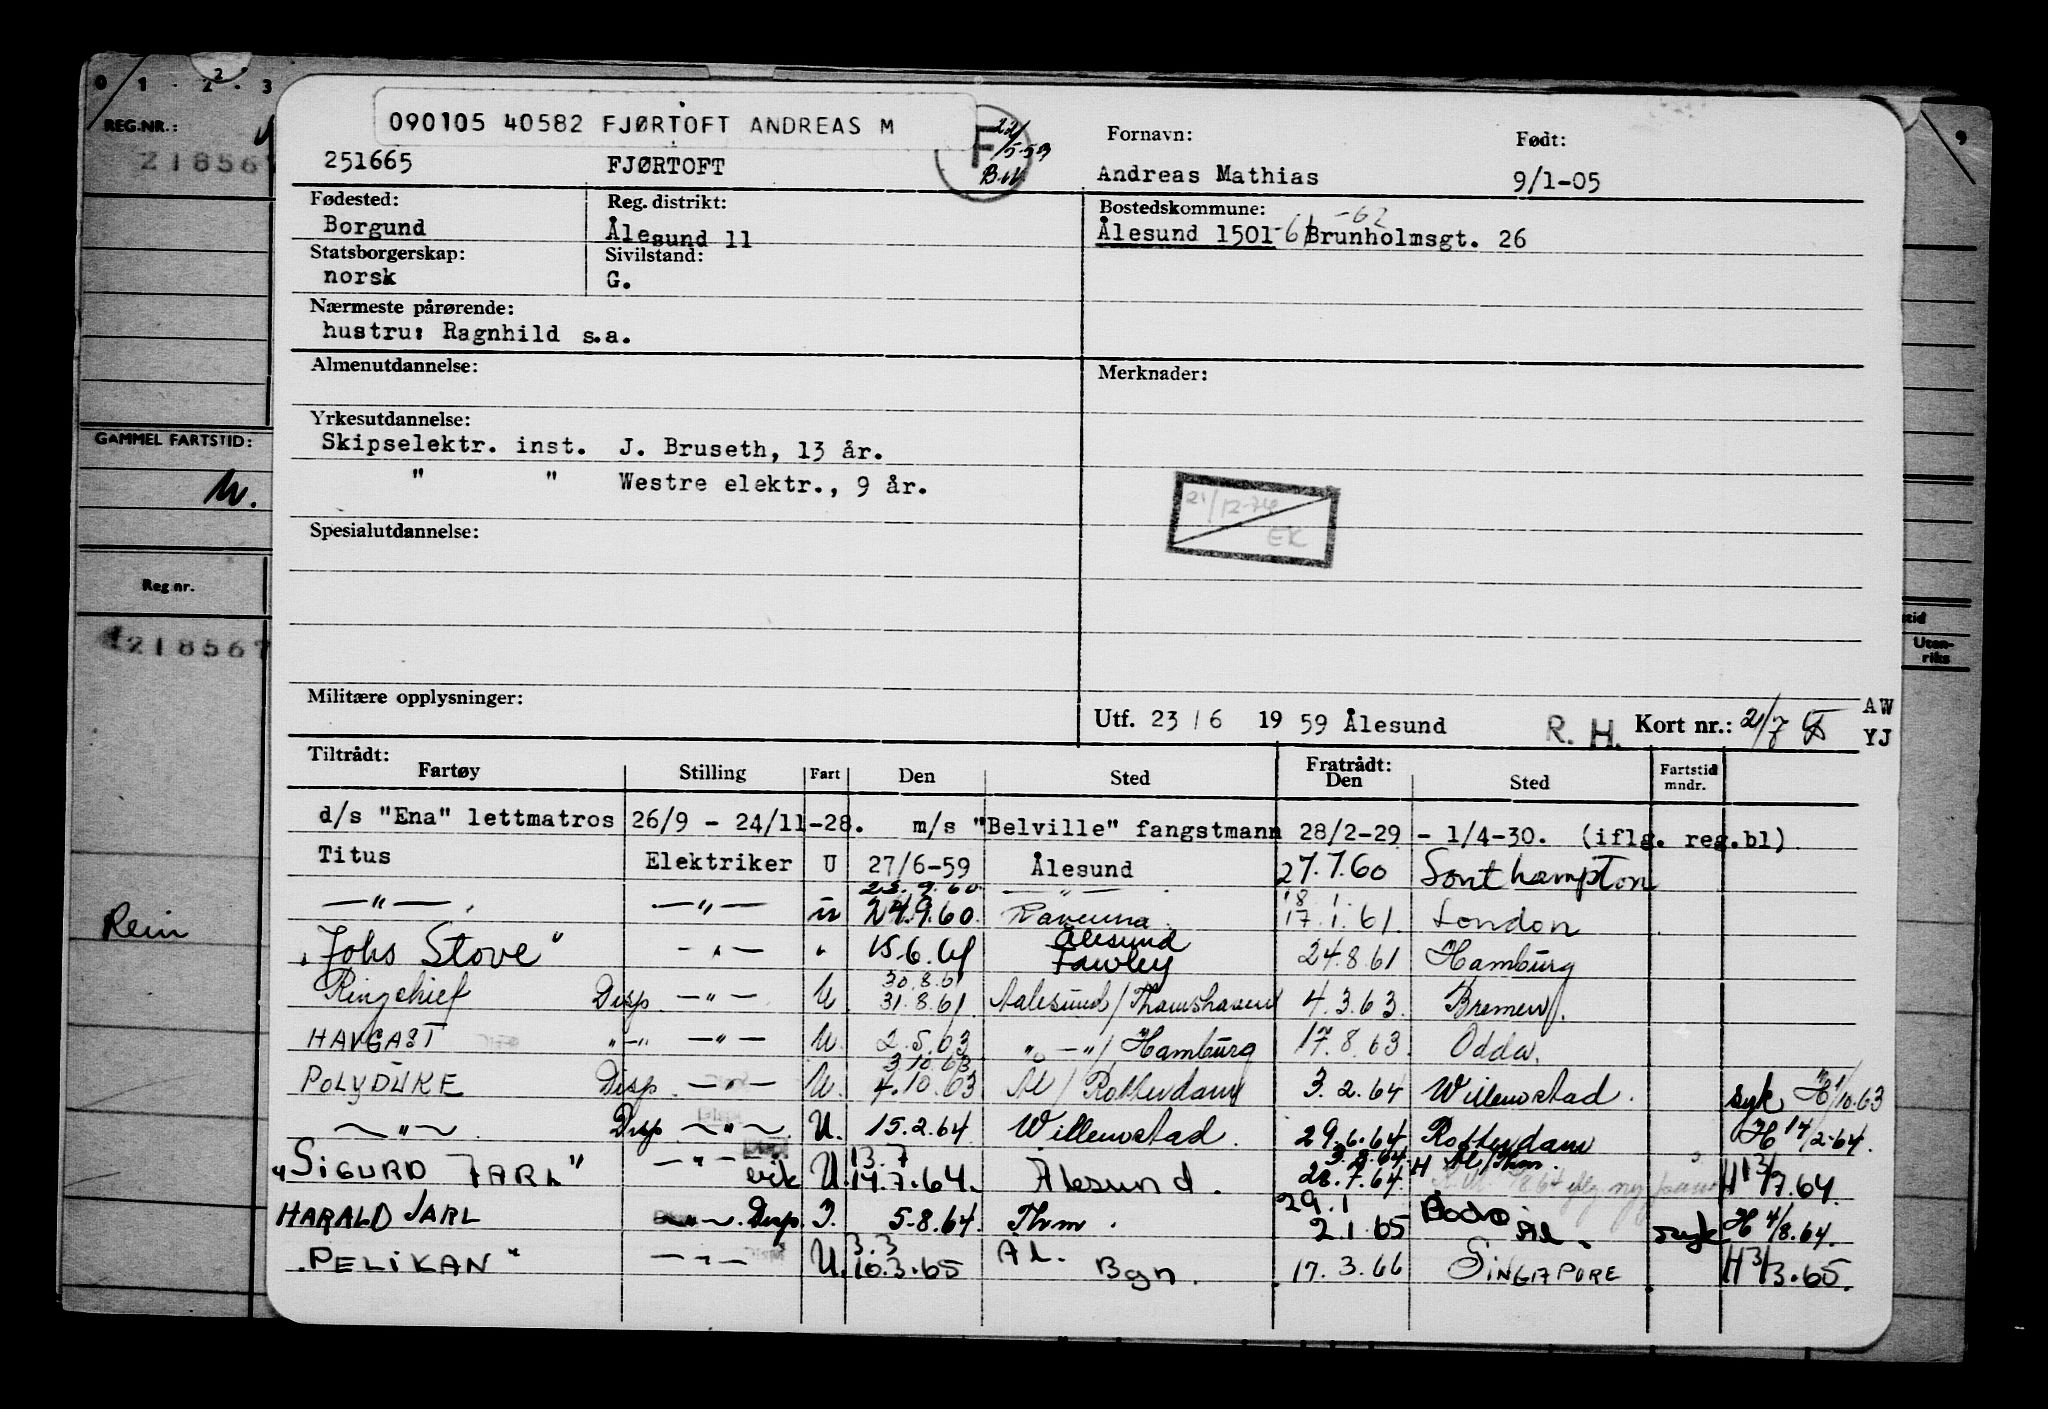 0 1 2 3
2
9
REG.NR.:
090105 40582 FJØRTOFT ANDREAS M
F 22/5-59
Fornavn:
Født:
218567
251665 FJØRTOFT
Andreas Mathias 9/1-05
Fødested: Reg. distrikt: Bostedskommune:
-62
Borgund Ålesund 11 Ålesund 1501 -61 Brunholmsgt. 26
Statsborgerskap: Sivilstand:
norsk G.
Nærmeste pårørende:
hustru: Ragnhild s.a.
Almenutdannelse: Merknader:
Yrkesutdannelse:
GAMMEL FARTSTID:
Skipselektr. inst. J. Bruseth, 13 år.
" " Westre elektr., 9 år.
21/12-74
EK
Spesialutdannelse:
Reg nr.
218567
Utenriks
Militære opplysninger:
Utf. 23/6 1959 Ålesund R. H. Kort nr.: 2/7
AW
YJ
Tiltrådt: Fratrådt:
Fartøy Stilling Fart Den Sted Den Sted Fartstid mndr.
d/s "Ena" lettmatros 26/9 - 24/11-28. m/s "Belville" fangstmann 28/2-29 - 1/4-30. (iflg. reg.bl)
Titus Elektriker U 27/6-59 Ålesund 27.7.60 Southampton
23.9.60 — " — 18 1
Rein
— " — — " — u 24.9.60. Ravenna. 17.1.61 London
Ålesund
"Johs Stove" - " - " 15.6.61 Fawley 24.8.61 Hamburg
30.8.61
Ringchief Disp. — " — U. 31.8.61 Aalesund/Thamshavn 4.3.63. Bremen.
HAVGAST " - " — " — U. 2.5.63 " — "/Hamburg 17.8.63. Odda.
3.10.63
POLYDUKE Disp. — " — U. 4.10.63 Ål/Rotterdam 3.2.64 Willemstad. syk H 1/10.63
— " — Disp — " — U. 15.2.64 Willemstad. 29.6.64 Rotterdam H 14/2-64.
13.7 3.8.64 H Ål/Thm.
"SIGURD JARL" — " — vik U. 14.7.64. Ålesund. 28.7.64. H 13/7.64.
29.1 Bodø
HARALD JARL — " — Disp. I. 5-8.64. Thm. 2.1.65 Ål. syk H 4/8.64.
3.3 Ål.
"PELIKAN" — " — U. 10.3.65 Bgn. 17.3.66 SINGAPORE H 3/3.65.